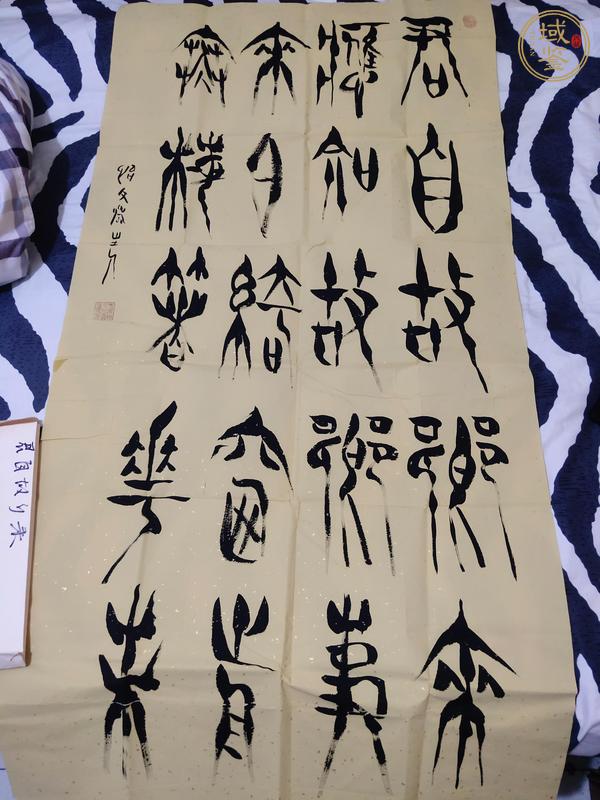 君自故鄉來
應知故鄉事
來日綺窗前
寒梅著花未
君自故乡来
域鉴